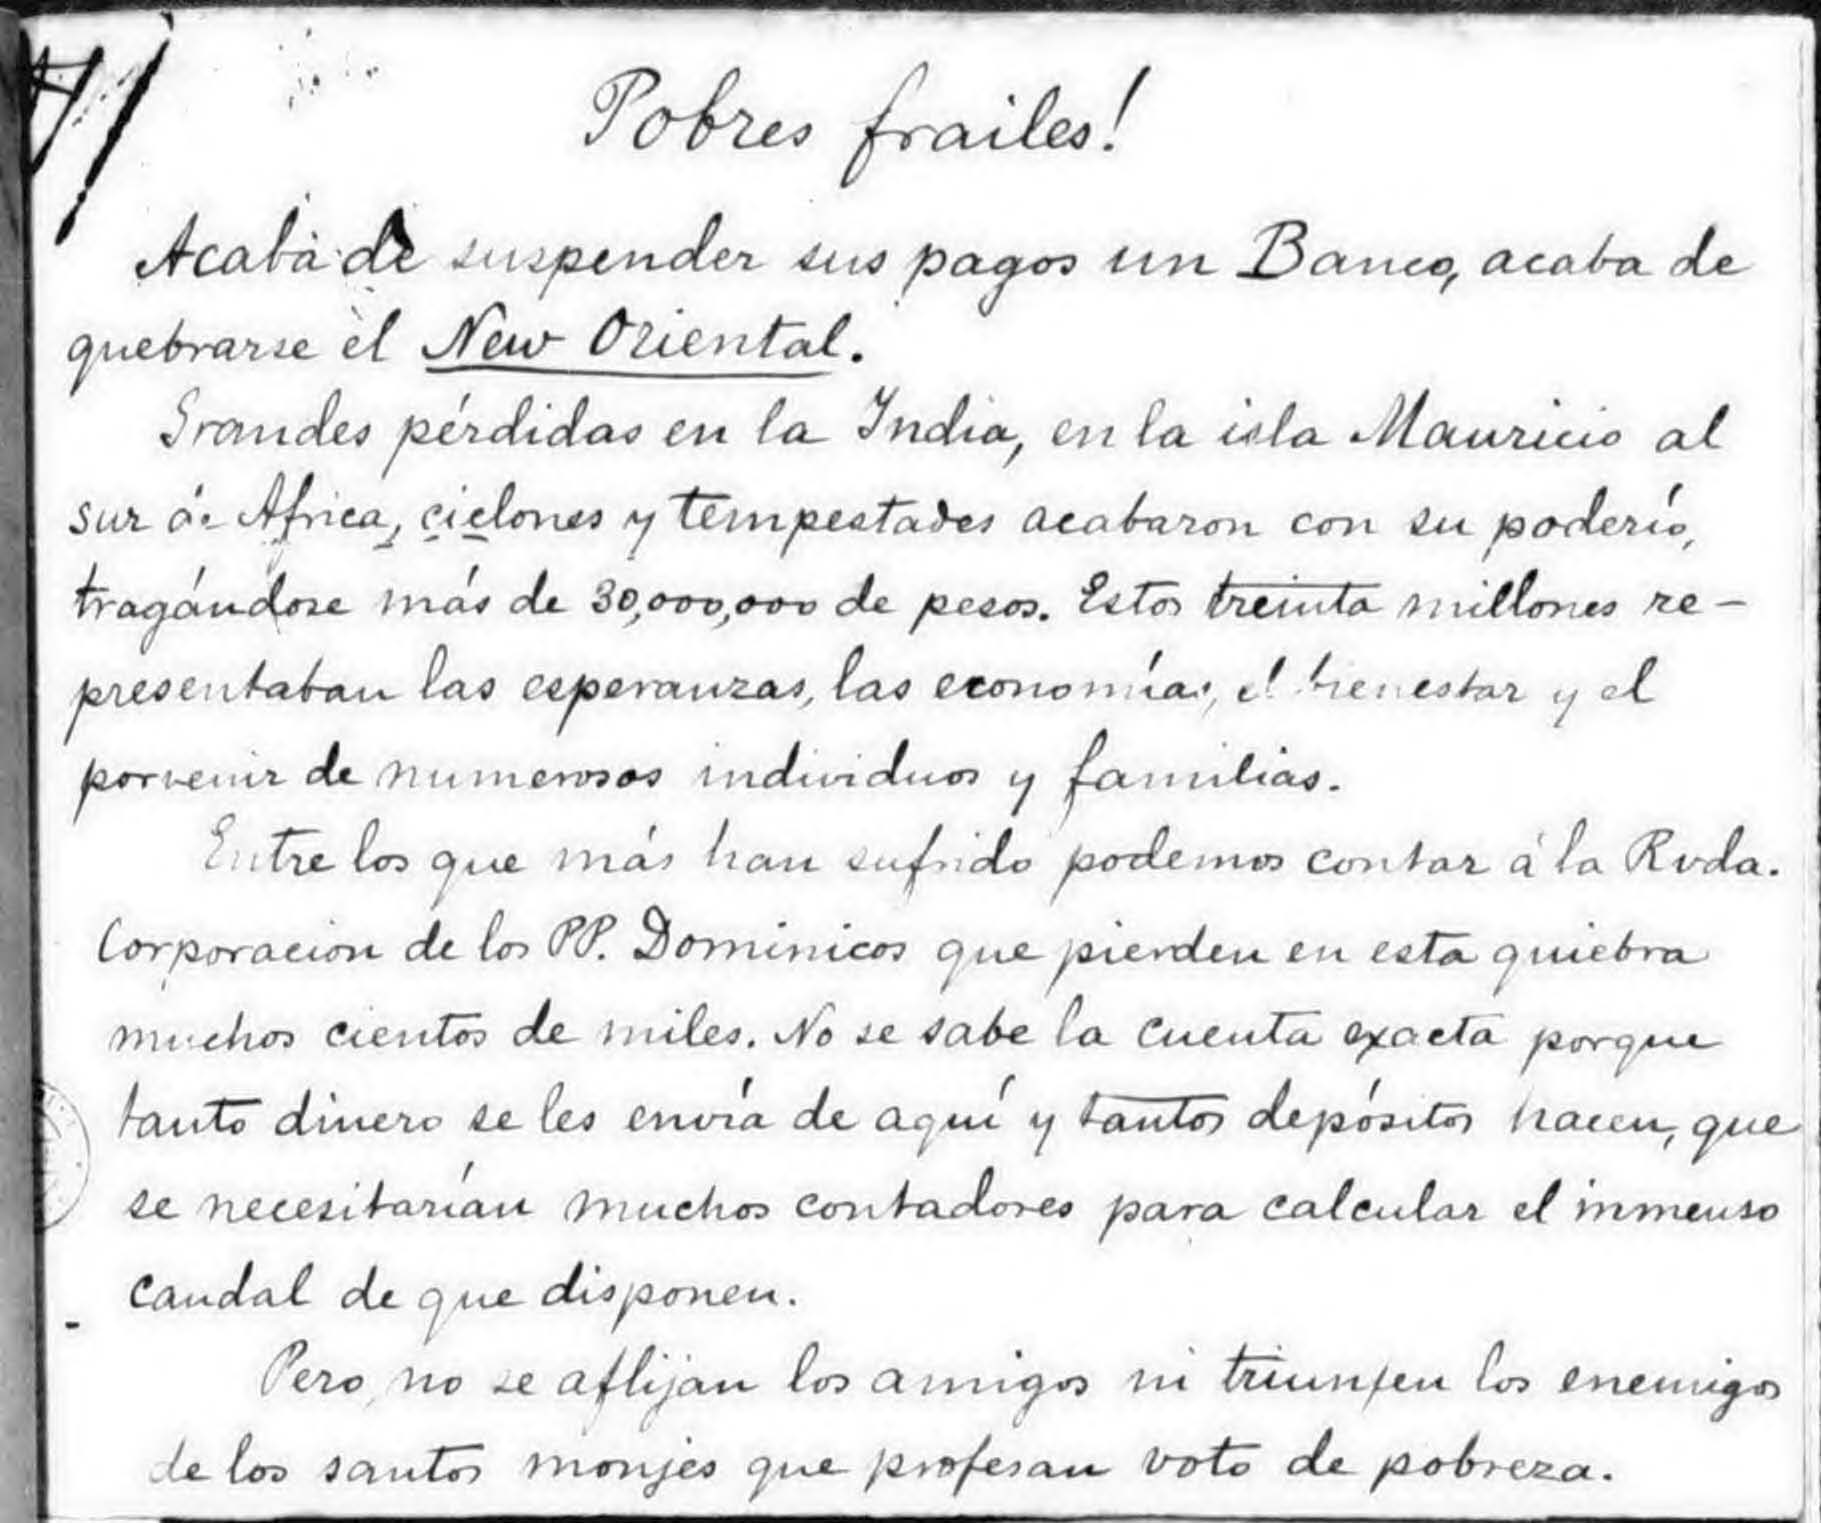 Pobres frailes!
Acaba de suspender sus pagos un Banco, acaba de
quebrarse el New Oriental.
Grandes pérdidas en la India, en la isla Mauricio al
sur de Africa, ciclones y tempestades acabaron con su poderío,
tragándose más de 30,000,000 de pesos. Estos treinta millones re-
presentaban las esperanzas, las economías, el bienestar y el
porvenir de numerosos individuos y familias.
Entre los que más han sufrido podemos contar á la Rvda.
Corporacion de los PP. Dominicos que pierden en esta quiebra
muchos cientos de miles. No se sabe la cuenta exacta porque
tanto dinero se les envía de aquí y tantos depósitos hacen, que
se necesitarían muchos contadores para calcular el inmenso
caudal de que disponen.
Pero, no se aflijan los amigos ni triunfen los enemigos
de los santos monjes que profesan voto de pobreza.